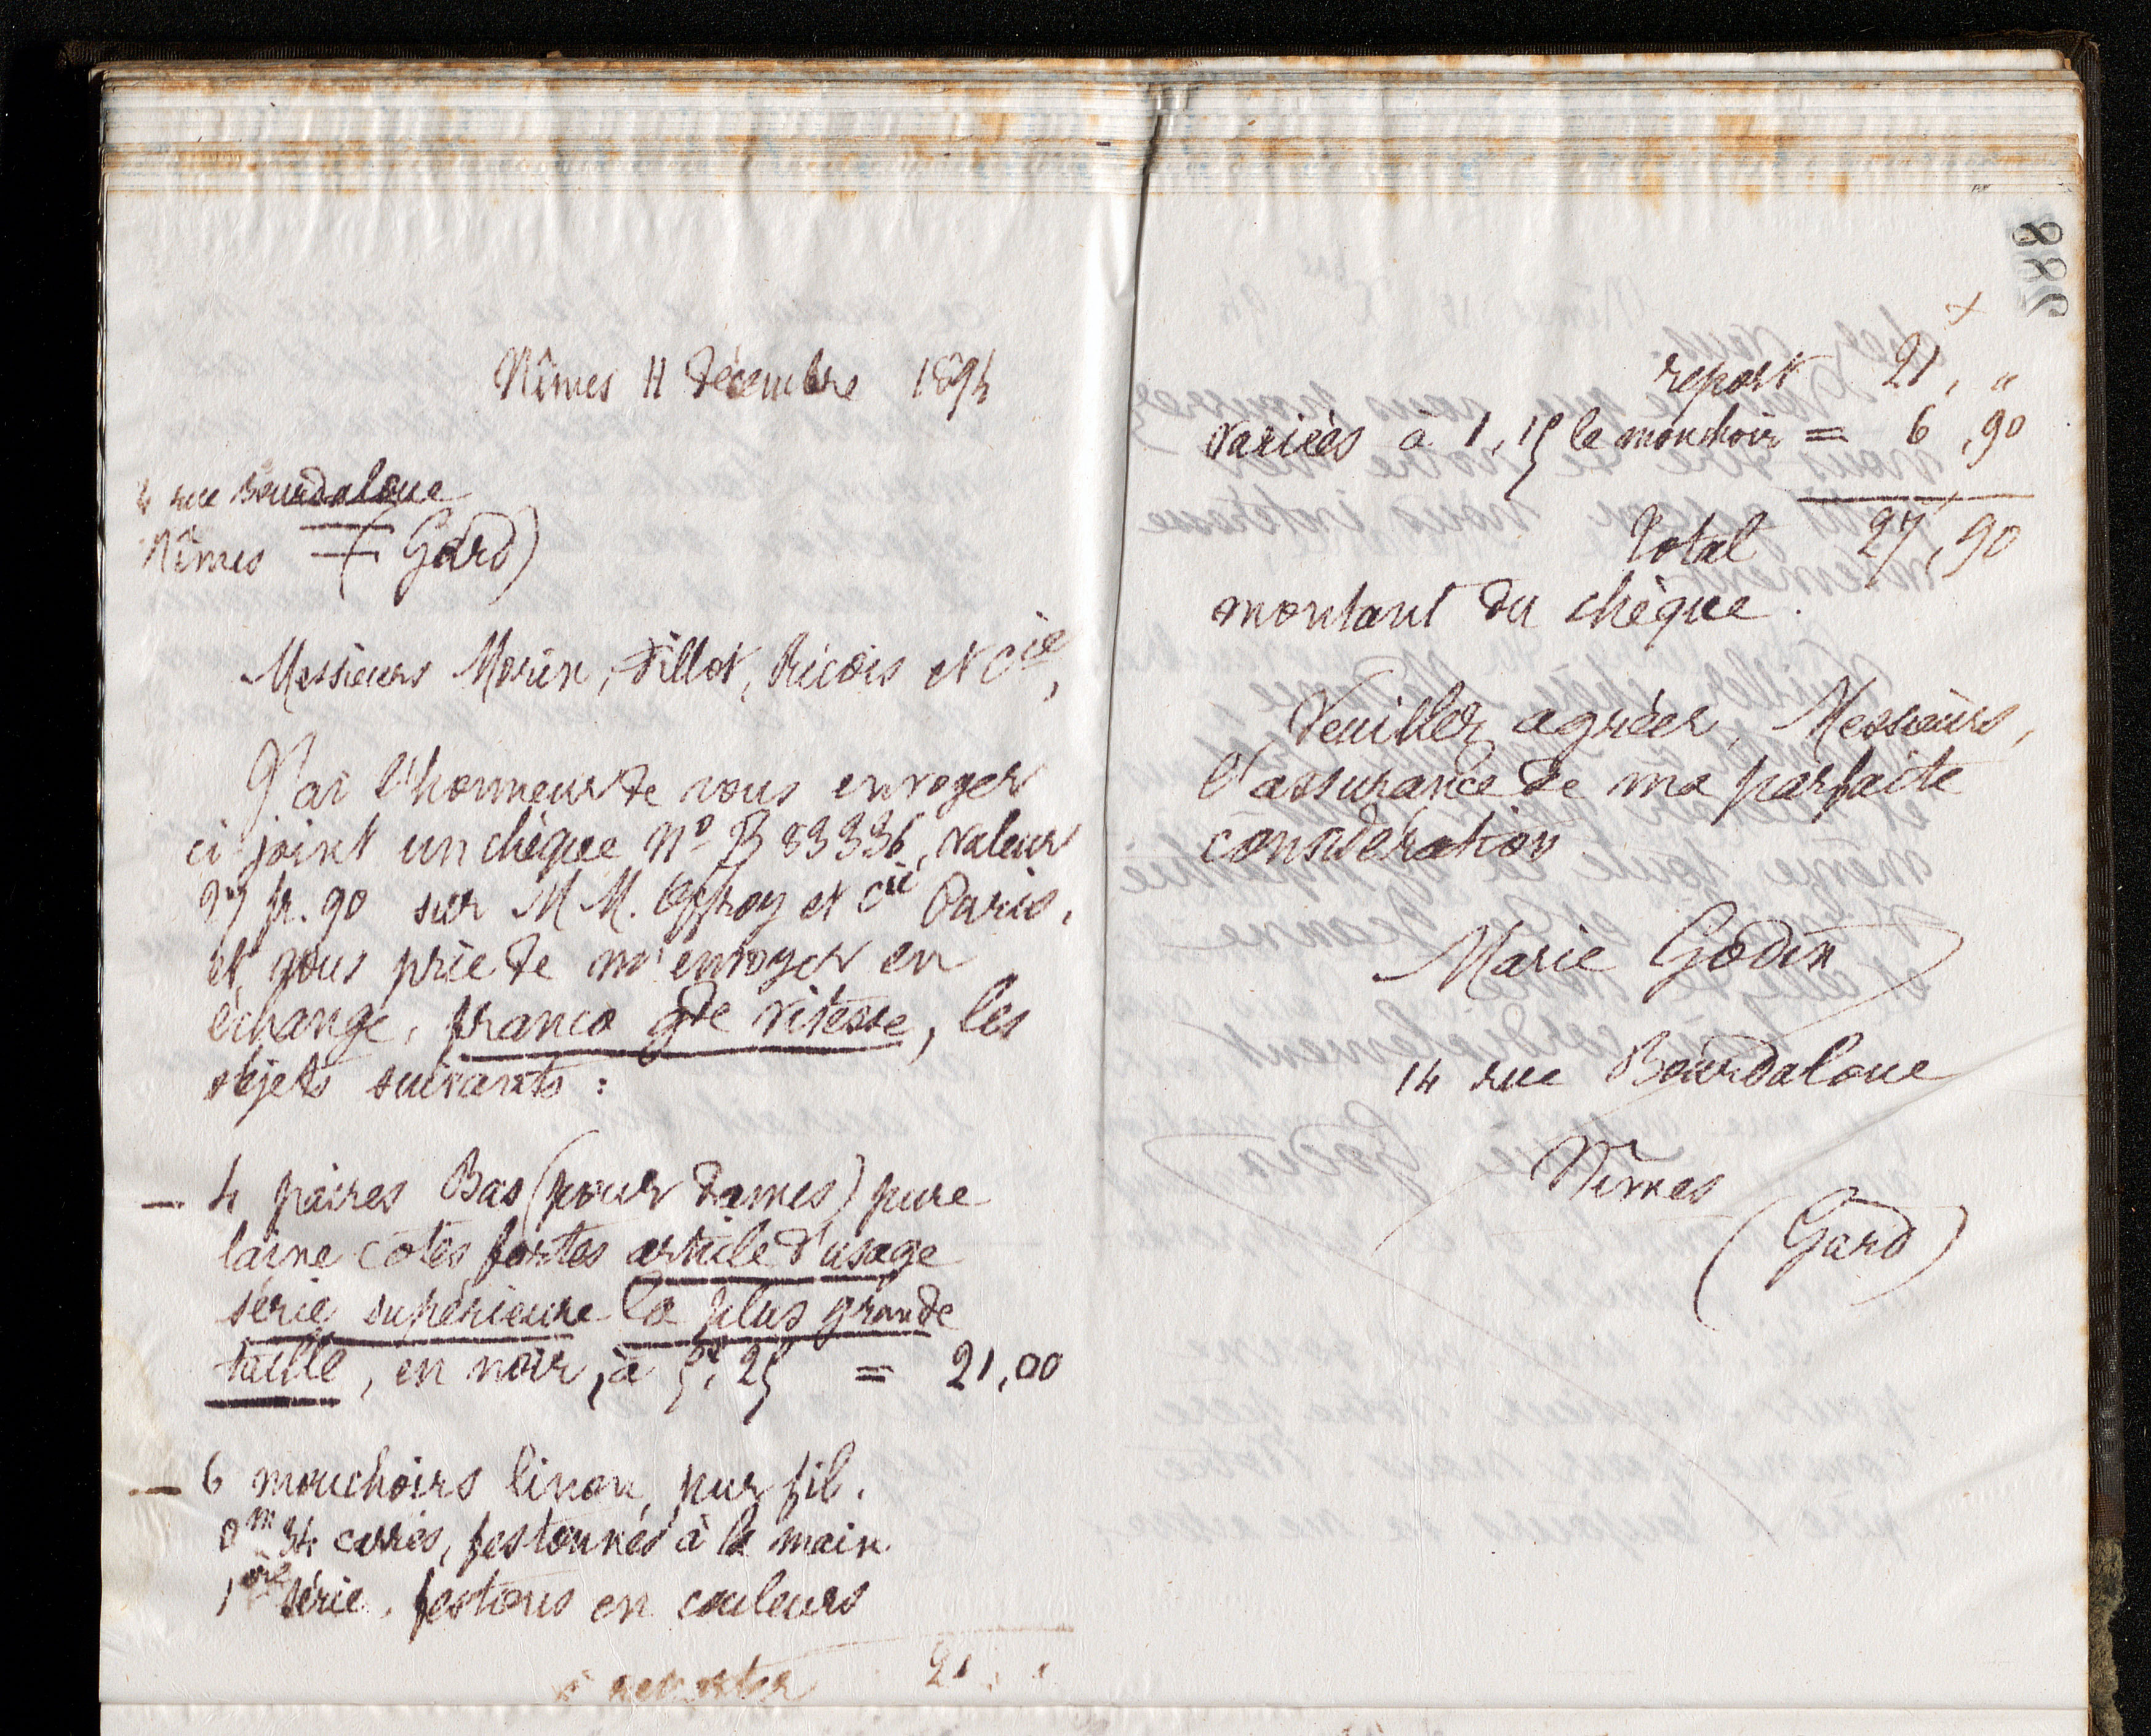 Nîmes 11 décembre 1894
4 rue Bourdaloue
Nîmes (Gard)
Messieurs Morin, Fillot, Ricois et Cie,
J'ai l'honneur de vous envoyer
ci joint un chèque No B 83336, valeur
27 fr. 90 sur M M. Offroy et Cie Paris,
et vous prie de m'envoyer en
échange, franco gde vitesse, les
objets suivants :
— 4 paires Bas (pour dames) pure
laine côtes fortes article d'usage
série supérieure la plus grande
taille, en noir, à 5f,25 = 21,00
— 6 mouchoirs linon, pur fil.
0m34 carrés, festonnés à la main
1ère série, festons en couleurs
à reporter 21,"
588
report 21, "
variées à 1,15 le mouchoir = 6,90
Total 27,90
montant du chèque.
Veuillez agréer, Messieurs,
l'assurance de ma parfaite
considération
Marie Godin
14 rue Bourdaloue
Nîmes
(Gard)